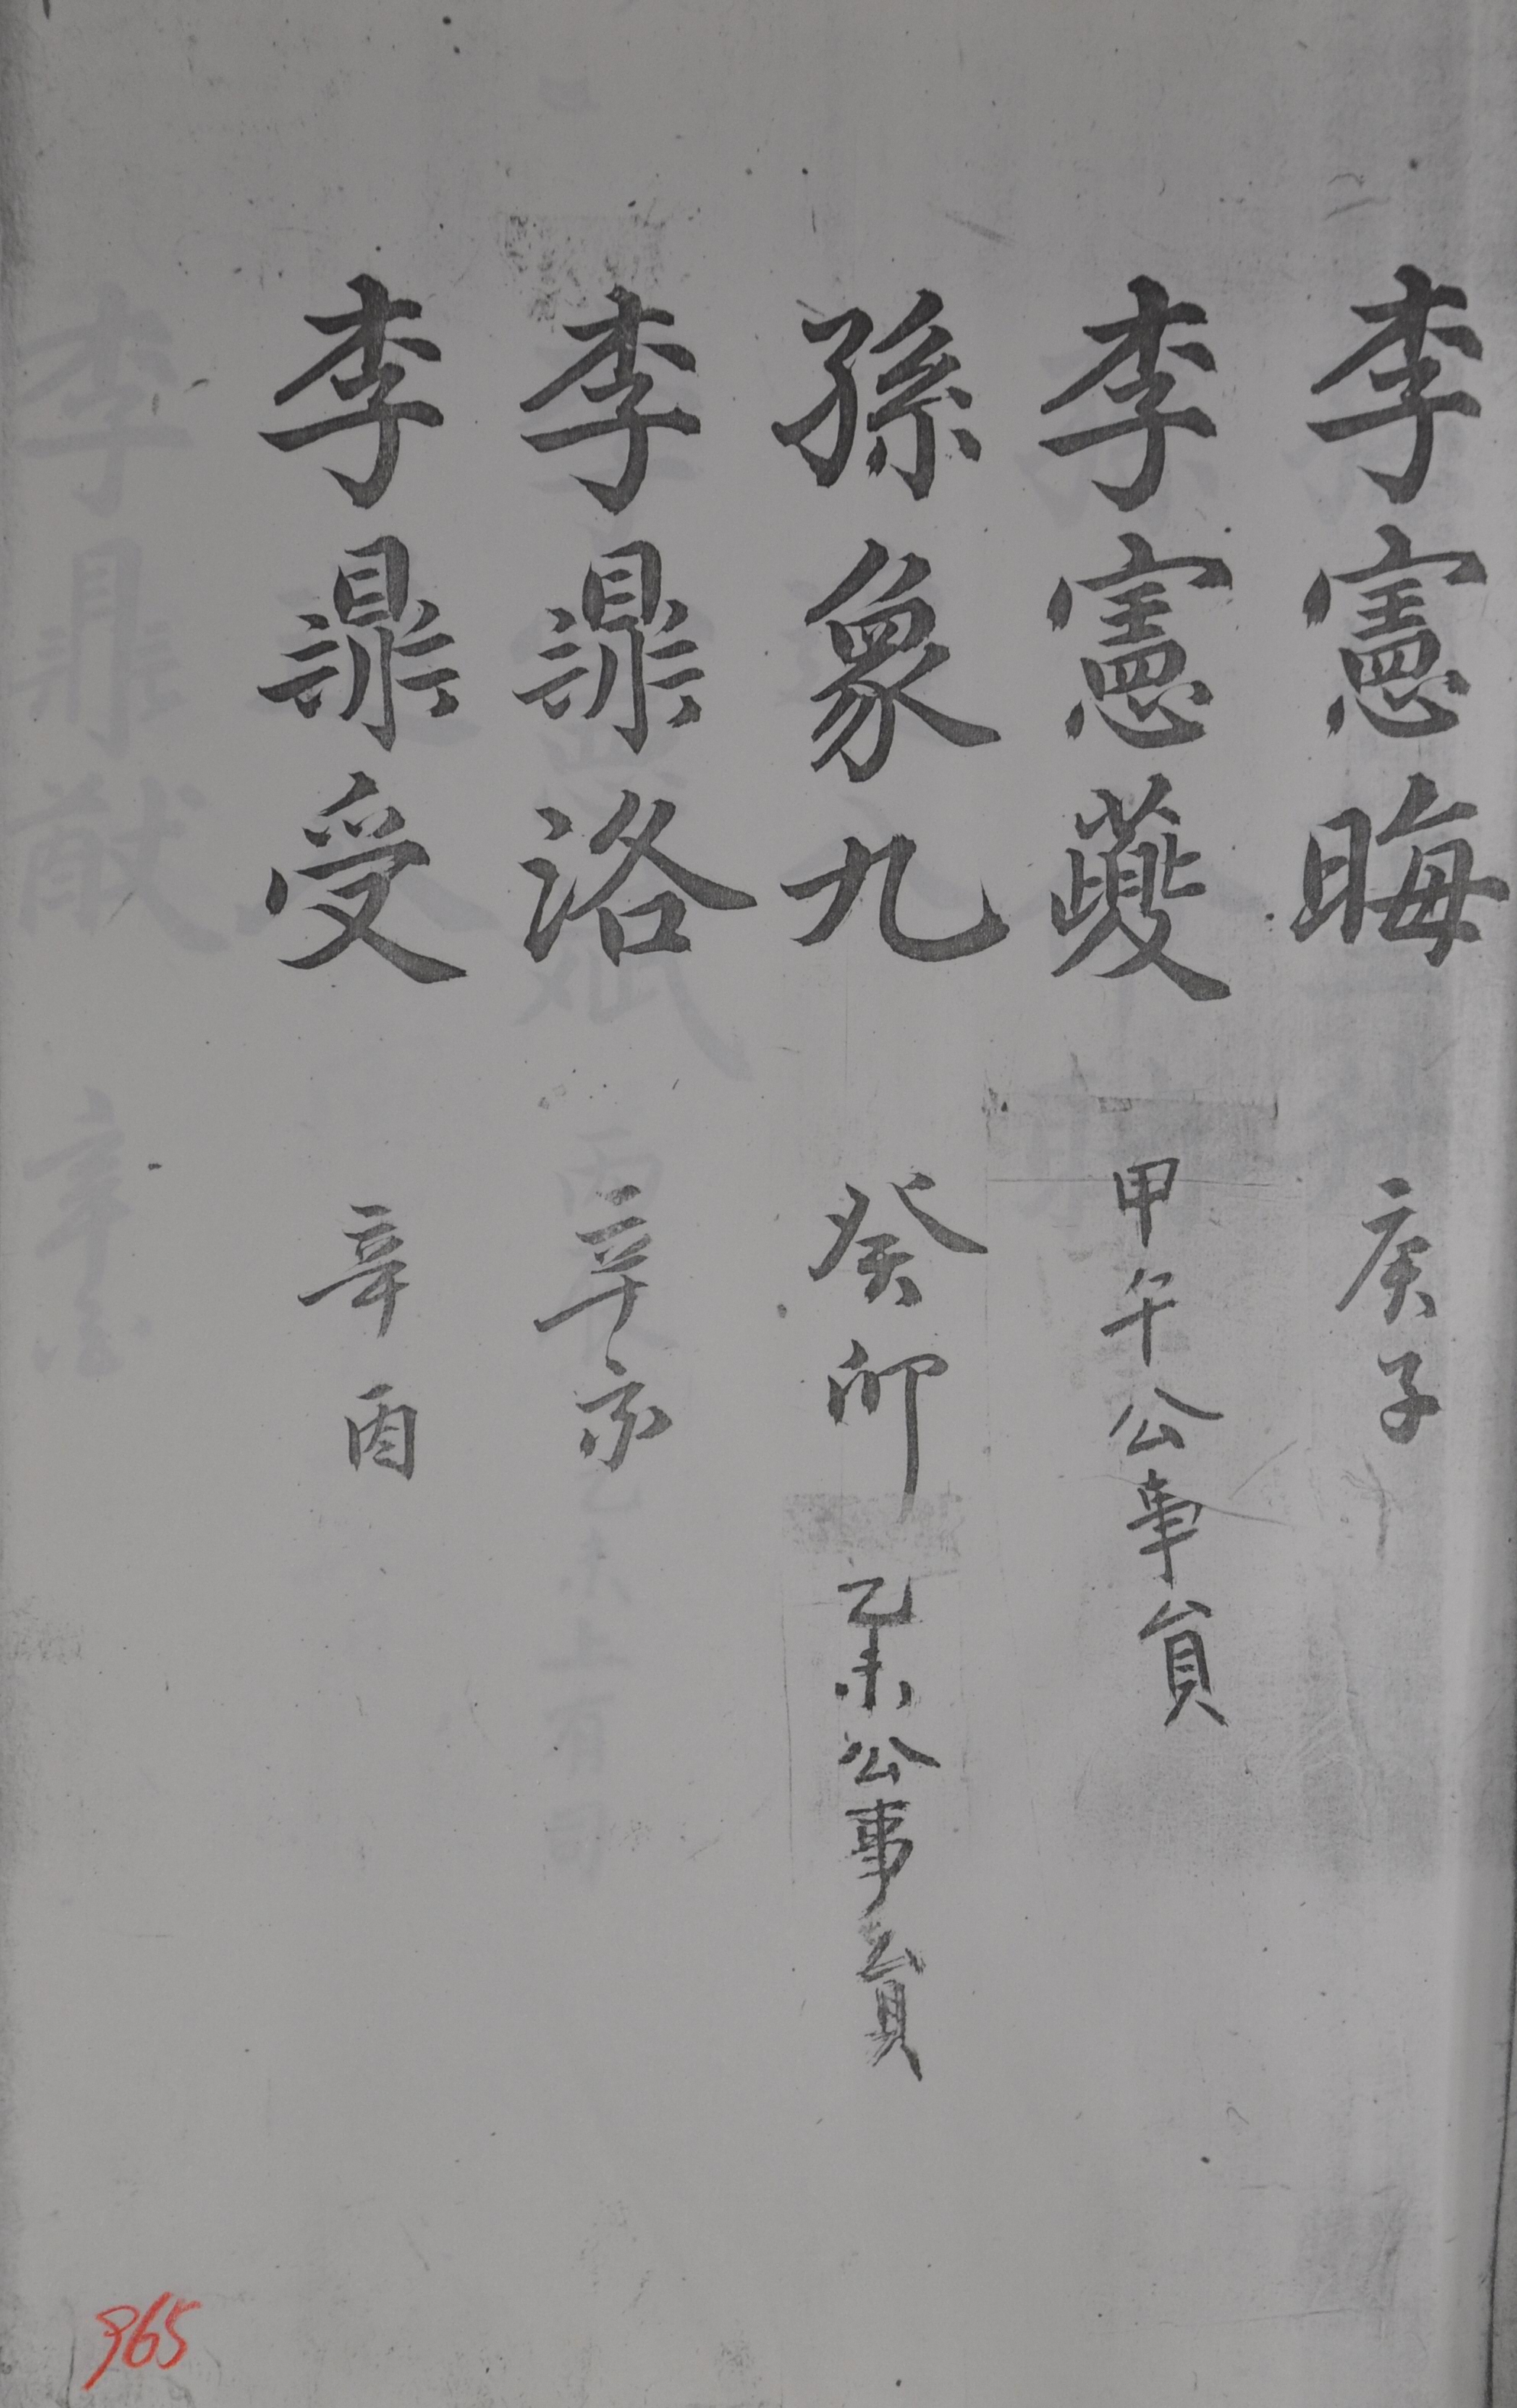 李憲晦 庚子
李憲夔 甲午公事員
孫象九 癸卯 乙未公事員
李鼎洛 辛亥
李鼎受 辛酉
965